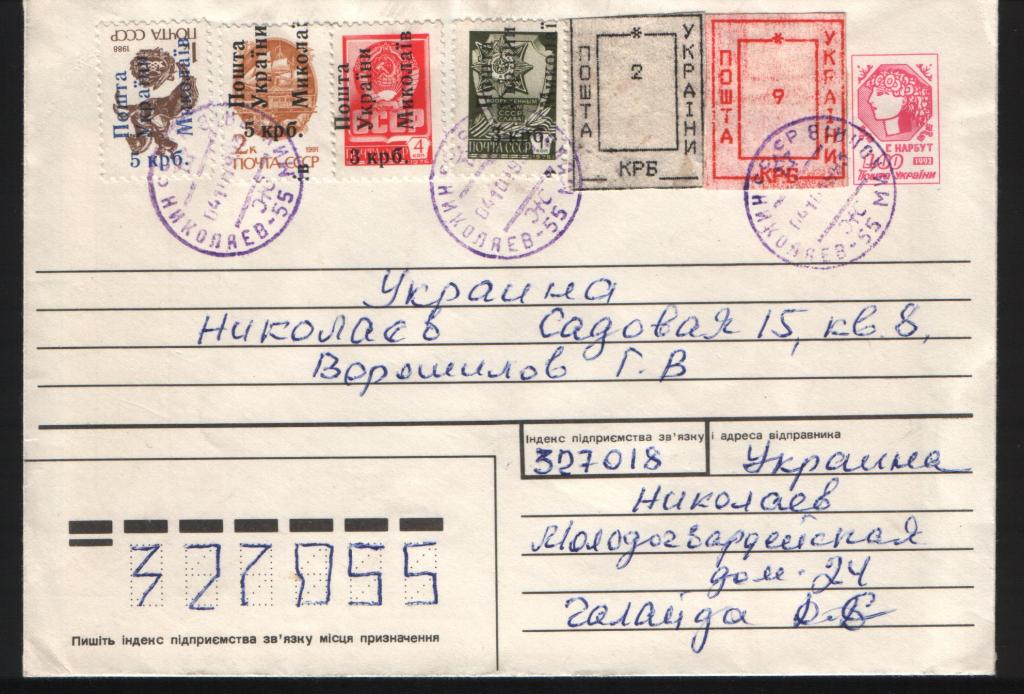 1988
ПОЧТА СССР
Пошта
України
Миколаїв
5 крб.
Пошта
України
Миколаї
5 крб.
2к
1991
ПОЧТА СССР
.в
Пошта
України
Миколаїв
3 крб.
4
ПОЧТА СССР
Пошта
3 крб.
ПОЧТА СССР
ПОШТА
*
2
УКРАЇНИ
КРБ
ПОШТА
*
9
УКРАЇНИ
КРБ
Г. НАРБУТ
1992
Пошта України
НИКОЛАЕВ-55
НИКОЛАЕВ-55
НИКОЛАЕВ-55
Украина
Николаев Садовая 15, кв. 8,
Ворошилов Г. В
Індекс підприємства зв'язку і адреса відправника
327018 Украина
Николаев
Молодогвардейская
дом. 24
Галайда
327055
Пишіть індекс підприємства зв'язку місця призначення